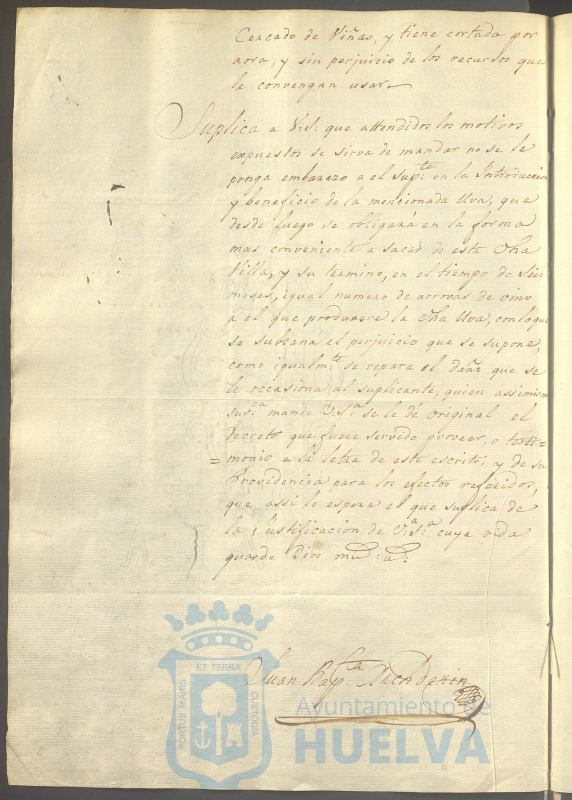 Cercado de Viñas, y tiene cortada por
aora, y sin perjuicio de los recursos que
le convengan usar
Suplica a V.S. que attendidos los motivos
expuestos se sirva de mandar no se le
ponga embarazo a el sup.te en la Introduccion
y beneficio de la mencionada Uva, que
desde luego se obligará en la forma
mas conveniente a sacar de esta dha
Villa, y su termino, en el tiempo de seis
meses, igual numero de arrovas de vino
a el que produxere la dha Uva, con lo que
se subzana el perjuicio que se supone,
como igualm.te se repara el daño que se
le occasiona al suplicante, quien assimismo
sup.ca mande V.S.a se le dé original el
Decreto que fuese servido proveer, o testi=
=monio a la letra de este escrito, y de su
Providencia para los efectos referidos,
que assi lo espera el que suplica de
la Justificacion de V.a S.a cuya vida
guarde Dios m.s a.s
Juan Bap.ta
PORTUS MARIS
ET TERRÆ
CUSTODIA
Ayuntamiento de
HUELVA